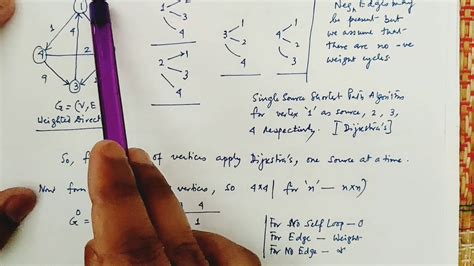 Neg, Edges may
be present but
we assume that
there are no -ve
weight cycles.
1
1
4
4
2
9
3
2
3
4
1
3
4
1
2
4
1
2
3
G = (V, E
Weighted Direct
Single Source Shortest Path Algorithm
for vertex '1' as source, 2, 3,
4 respectively. [Dijkstra's]
So, f of vertices apply Dijkstra's, one source at a time.
Now form vertices, so 4x4 | for 'n' — nxn)
G⁰ = 4
1
For No Self Loop — 0
For Edge — Weight
For No Edge — ∞